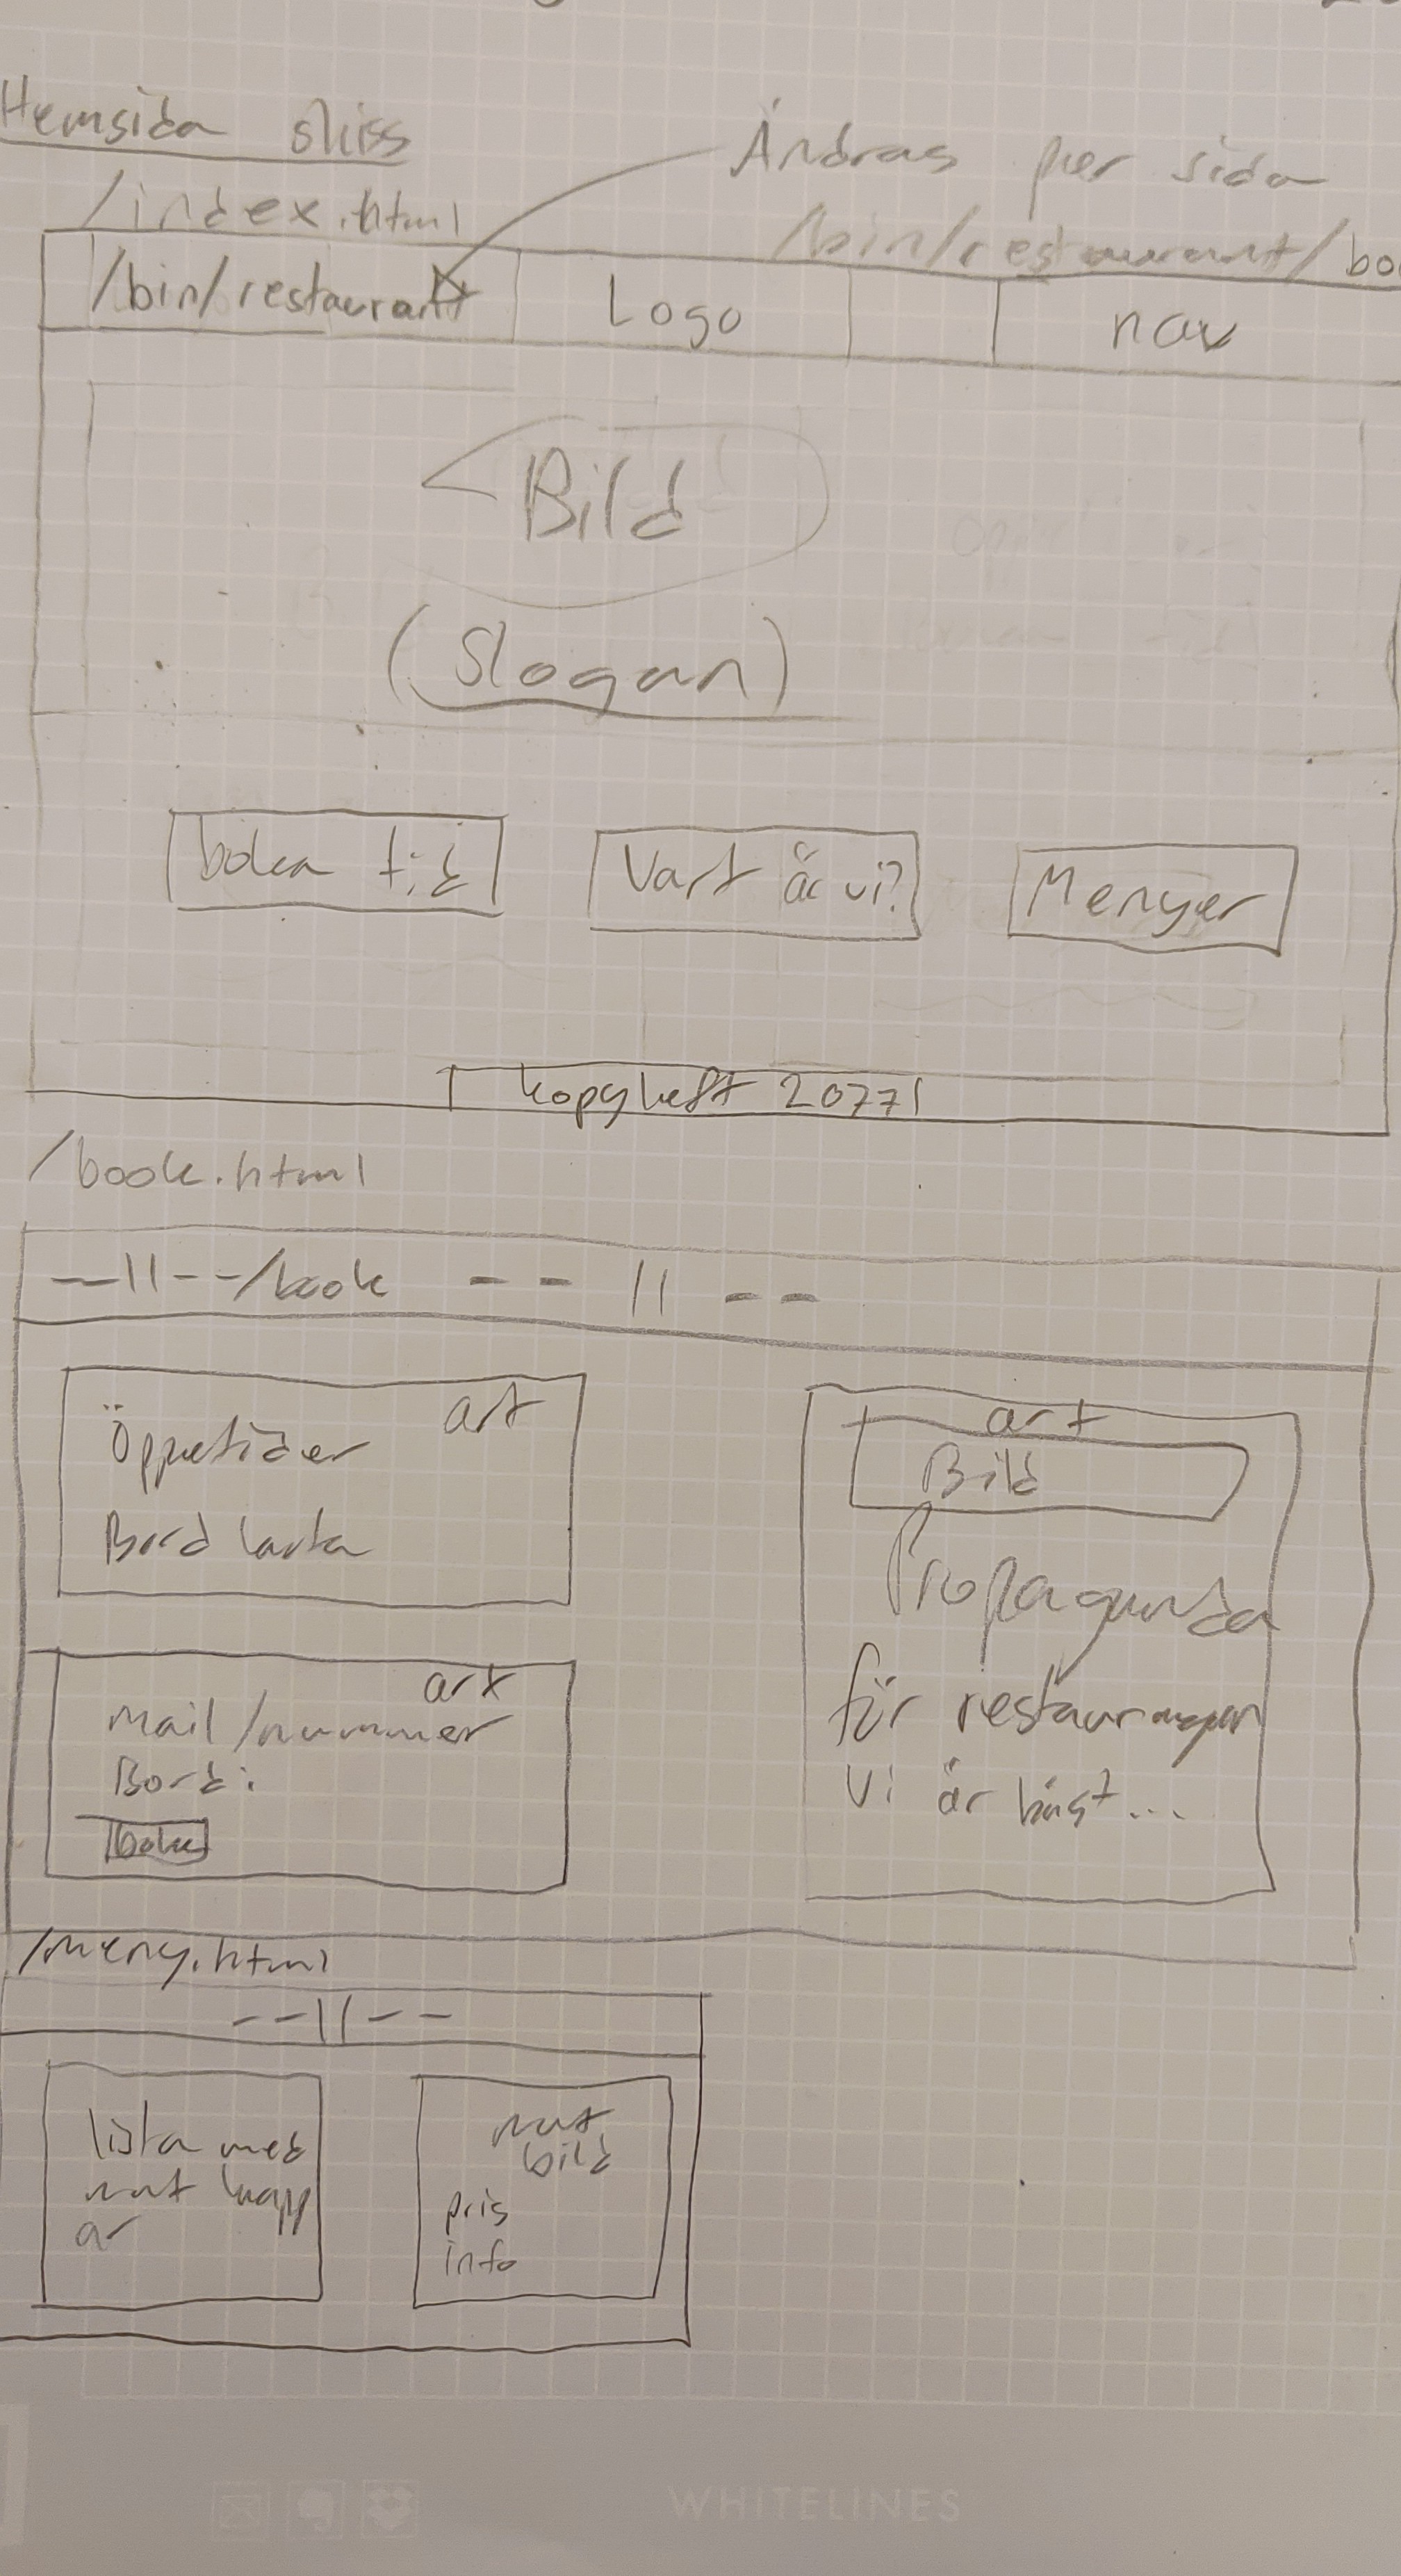 Hemsida skiss
Ändras per sida
/index.html
/bin/restaurant/boo
/bin/restaurant
Logo
nav
Bild
(Slogan)
boka tid
Vart är vi?
Menyer
kopyleft 2077
/book.html
--11--/book -- 11 --
art
Öppetider
Bord karta
art
Mail/nummer
Bord:
boka
art
Bild
Propaganda
för restaurangen
Vi är bäst...
/meny.html
--11--
lista med
mat knapp
ar
mat
bild
pris
info
WHITELINES